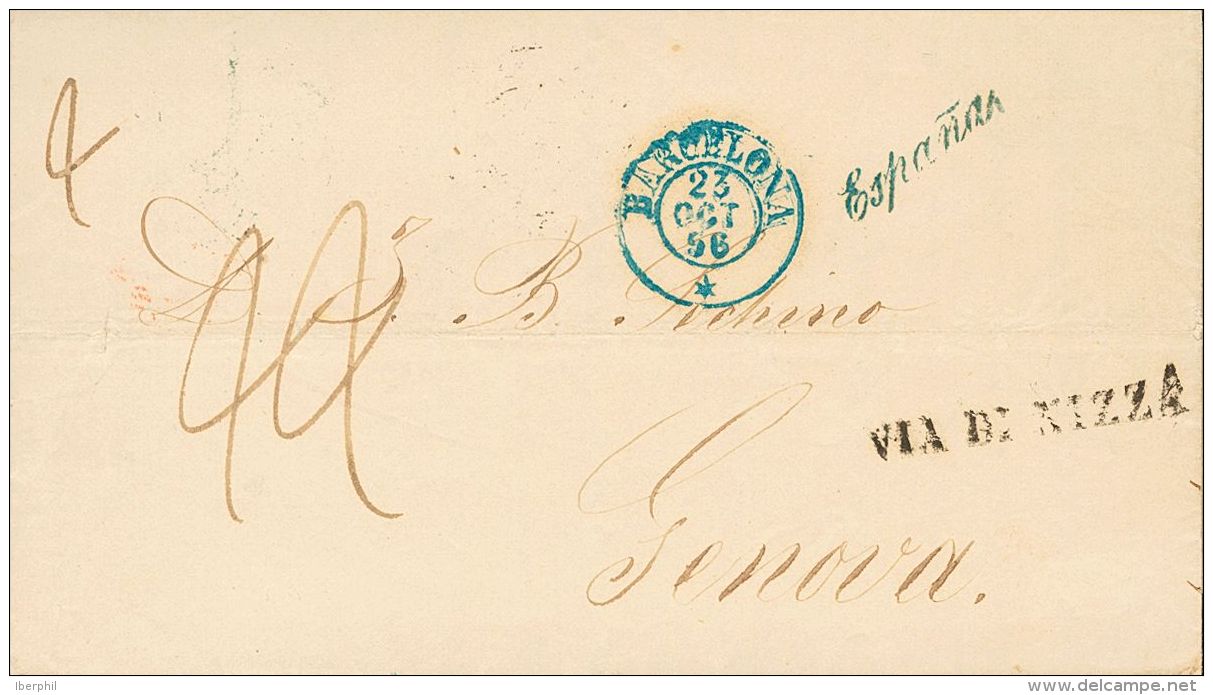 España
BARCELONA
23
OCT
56
4
D. J. B. Pochino
44
VIA DI NIZZA
Genova.
Iberphil
www.delcampe.net